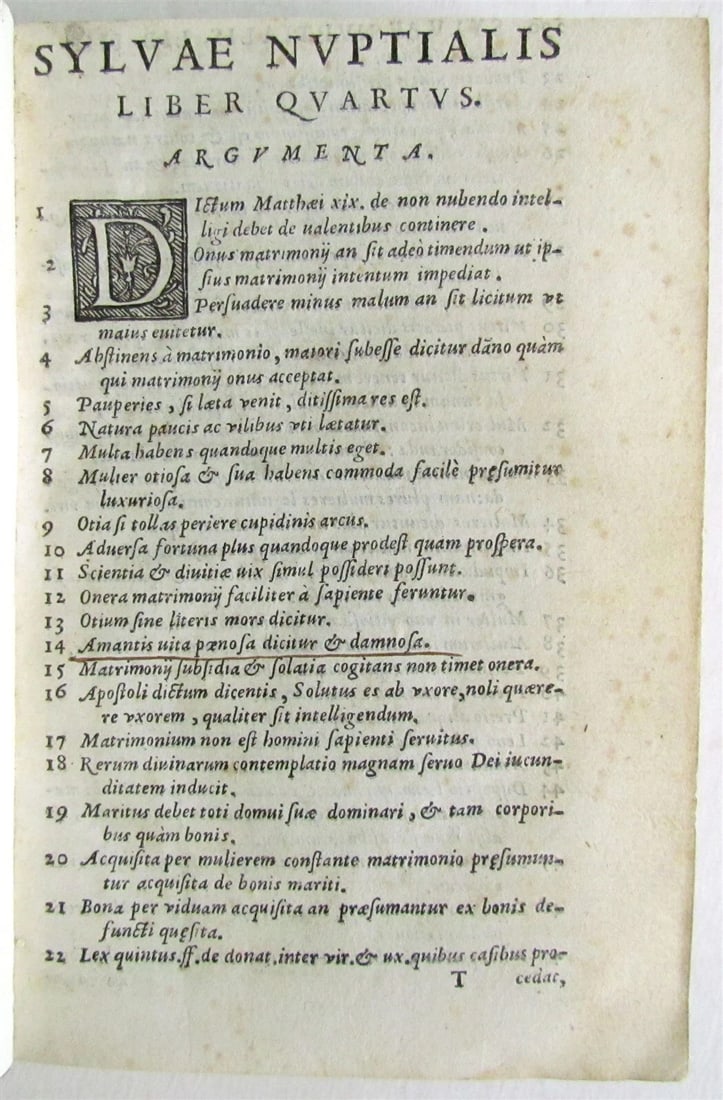 SYLVAE NVPTIALIS
LIBER QVARTVS.
ARGVMENTA.
1 DIctum Matthæi xix. de non nubendo intel-
ligi debet de ualentibus continere.
2 Onus matrimonij an sit adeò timendum ut ip-
sius matrimonij intentum impediat.
3 Persuadere minus malum an sit licitum vt
maius euitetur.
4 Abstinens à matrimonio, maiori subesse dicitur dãno quàm
qui matrimonij onus acceptat.
5 Pauperies, si læta venit, ditissima res est.
6 Natura paucis ac vilibus vti lætatur.
7 Multa habens quandoque multis eget.
8 Mulier otiosa & sua habens commoda facilè pręsumitur
luxuriosa.
9 Otia si tollas periere cupidinis arcus.
10 Aduersa fortuna plus quandoque prodest quam prospera.
11 Scientia & diuitiæ uix simul possideri possunt.
12 Onera matrimonij faciliter à sapiente feruntur.
13 Otium sine literis mors dicitur.
14 Amantis uita pœnosa dicitur & damnosa.
15 Matrimonij subsidia & solatia cogitans non timet onera.
16 Apostoli dictum dicentis, Solutus es ab vxore, noli quære-
re vxorem, qualiter sit intelligendum.
17 Matrimonium non est homini sapienti seruitus.
18 Rerum diuinarum contemplatio magnam seruo Dei iucun-
ditatem inducit.
19 Maritus debet toti domui suæ dominari, & tam corpori-
bus quàm bonis.
20 Acquisita per mulierem constante matrimonio pręsumun-
tur acquisita de bonis mariti.
21 Bona per viduam acquisita an præsumantur ex bonis de-
functi quęsita.
22 Lex quintus. ff. de donat. inter vir. & ux. quibus casibus pro-
T cedat,